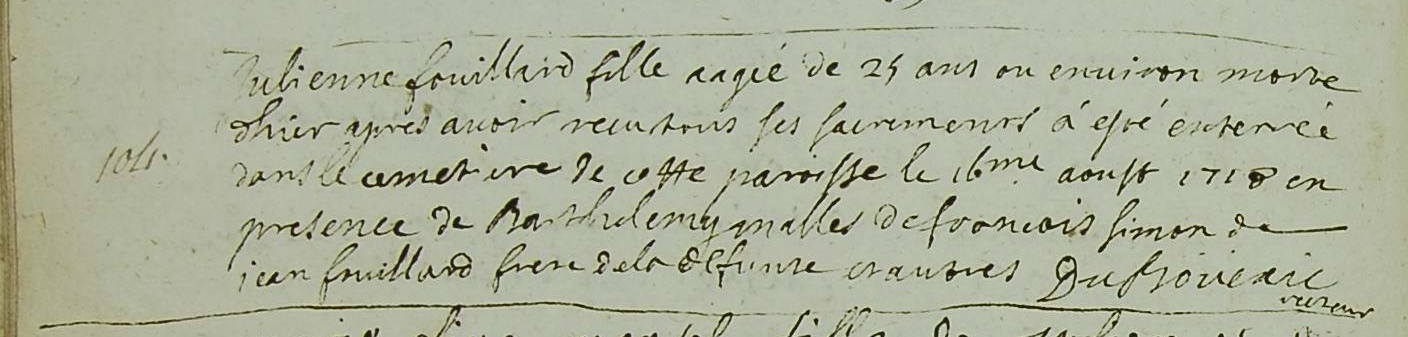 Julienne fouillard fille aagié de 25 ans ou environ morte
dhier apres avoir recu tous ses sacrements á esté enterréé
104.
dans le cemetiere de cette paroisse le 16me. aoust 1718 en
presence de Barthelemy malles de francois simon de
jean fouillard frere de la defunte et autres
recteur